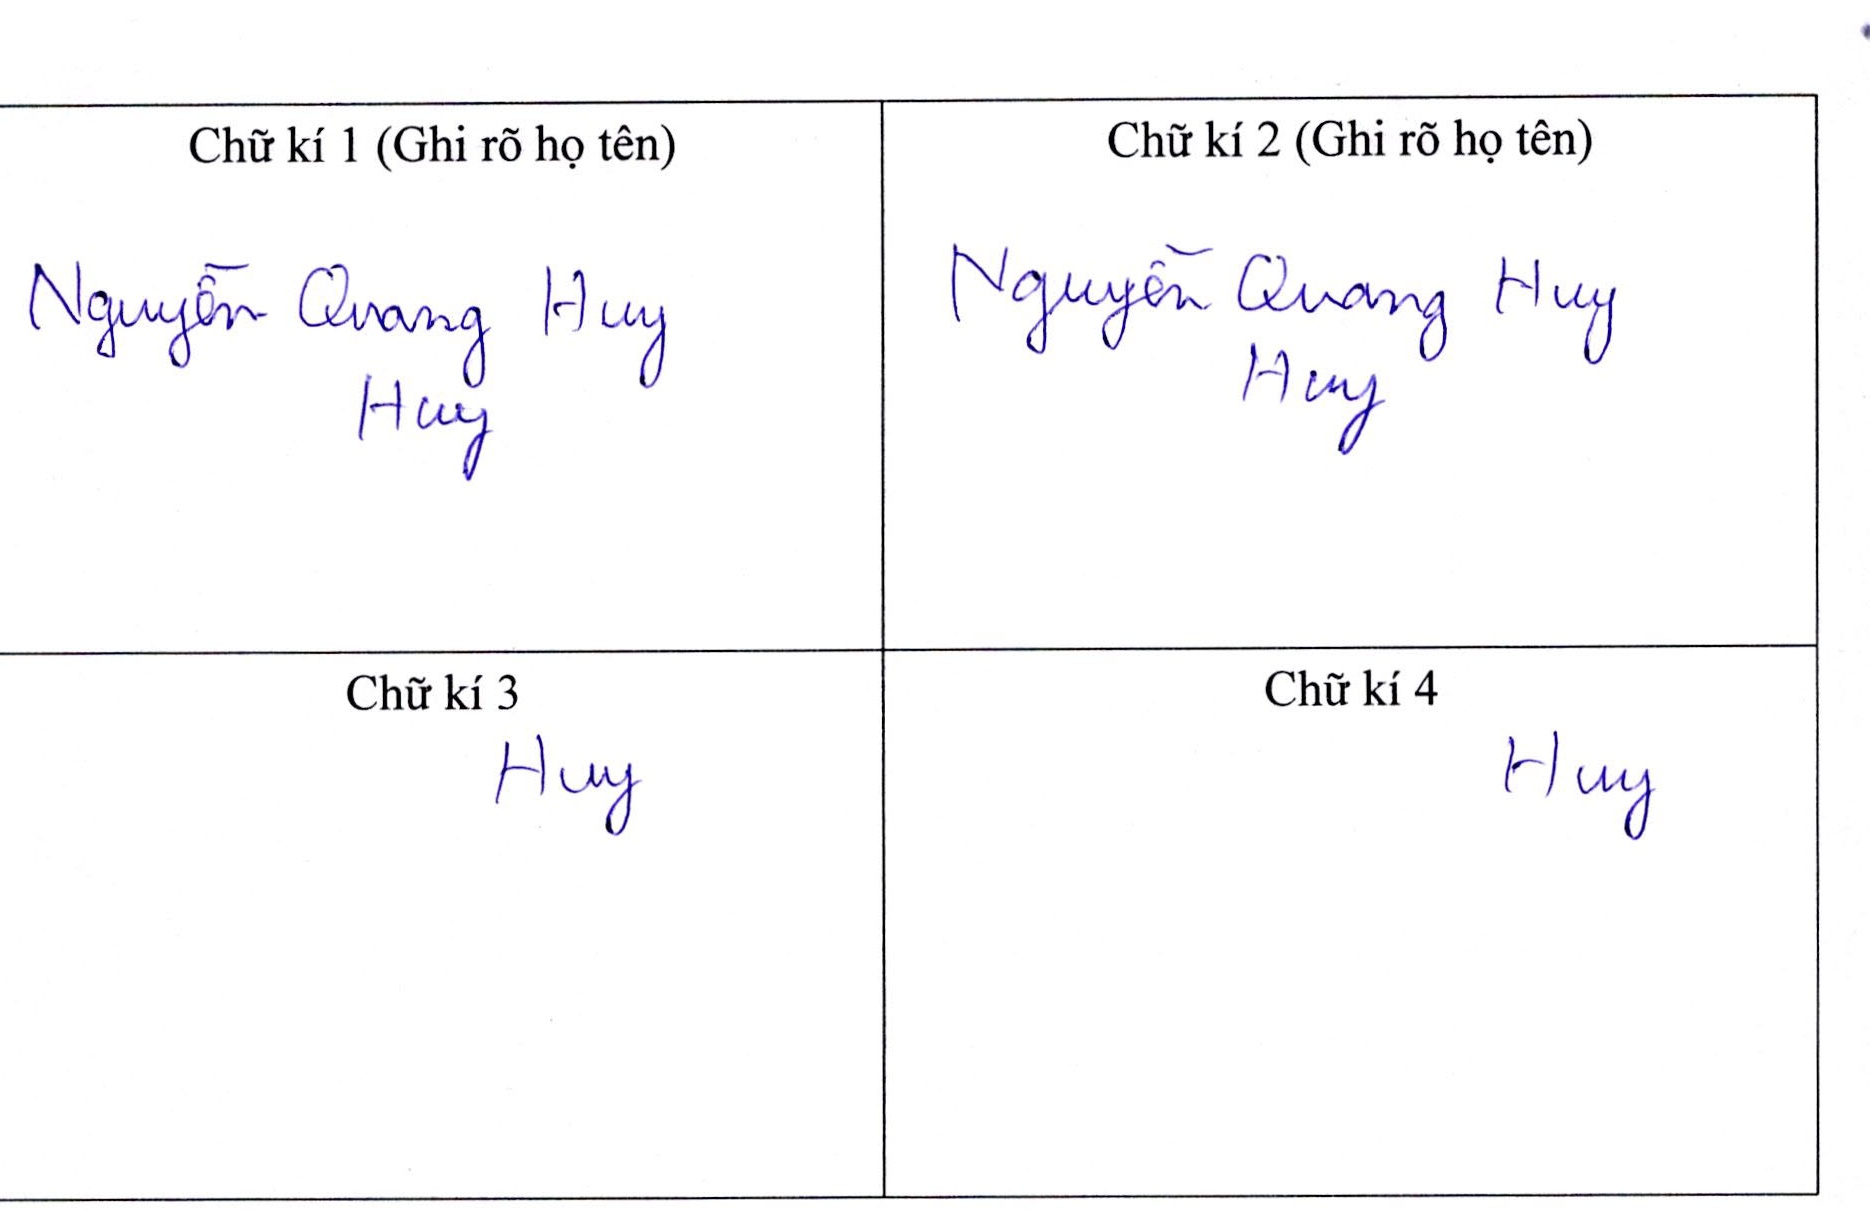 Chữ kí 1 (Ghi rõ họ tên)
Nguyễn Quang Huy
Huy
Chữ kí 2 (Ghi rõ họ tên)
Nguyễn Quang Huy
Huy
Chữ kí 3
Huy
Chữ kí 4
Huy